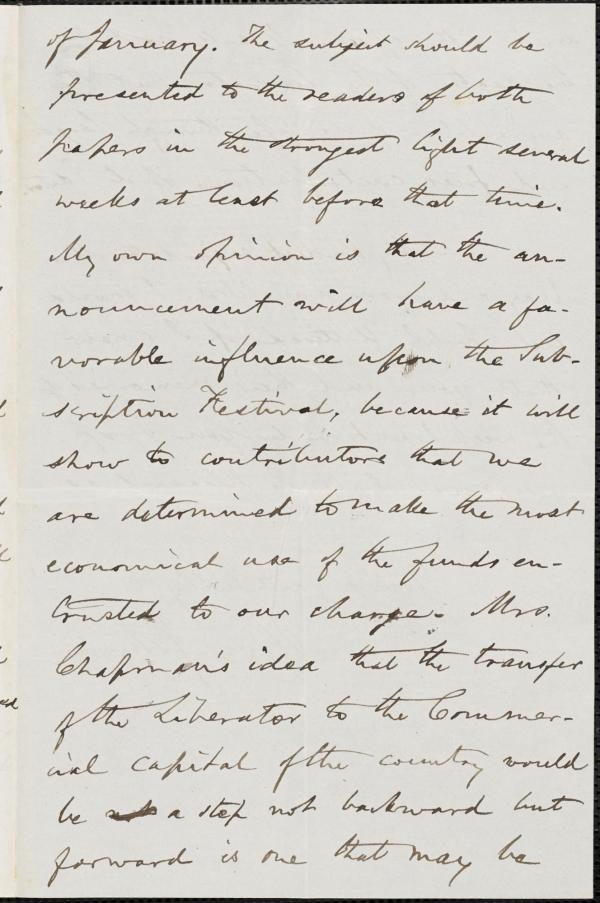 of January. The subject should be
presented to the readers of both
papers in the strongest light several
weeks at least before that time.
My own opinion is that the an-
nouncement will have a fa-
vorable influence upon the Sub-
scription Festival, because it will
show to contributors that we
are determined to make the most
economical use of the funds en-
trusted to our charge. Mrs.
Chapman's idea that the transfer
of the Liberator to the Commer-
cial capital of the country would
be a step not backward but
forward is one that may be